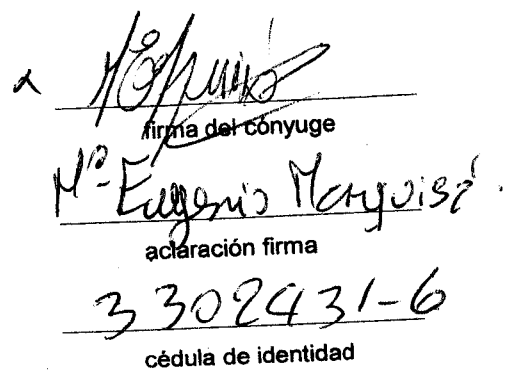 firma del cónyuge
Mª Eugenia Marquisá
aclaración firma
3302431-6
cédula de identidad